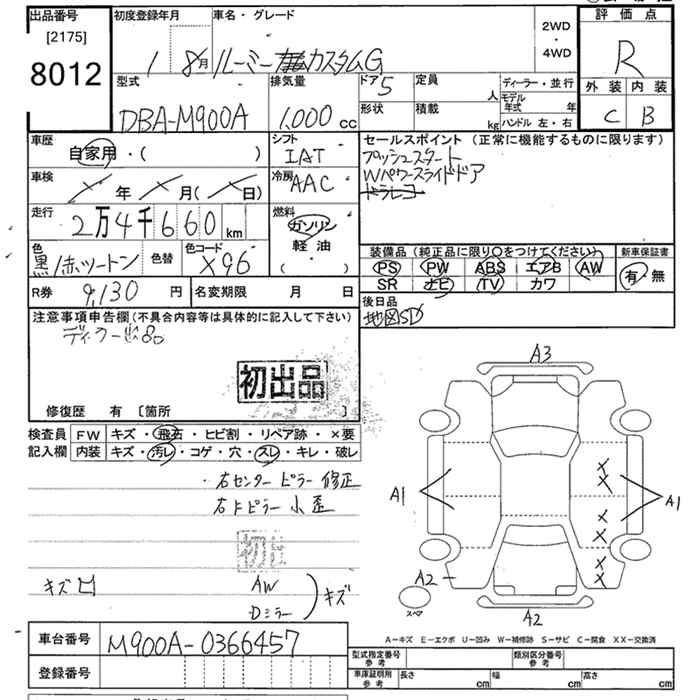 出品番号
[2175]
8012
初度登録年月
1 8月
車名・グレード
ルーミー カスタムG
2WD
・
4WD
評価点
R
外装 内装
C B
型式
DBA-M900A
排気量
1,000 cc
ドア 5
形状
定員
人
積載
kg
ディーラー・並行
モデル年式 年
ハンドル 左・右
車歴
自家用・( )
シフト
IAT
セールスポイント (正常に機能するものに限ります)
プッシュスタート
Wパワースライドドア
ドラレコ
車検
年 月( 日)
冷房
AAC
走行
2万4千660km
燃料
ガソリン
軽油
( ・ )
色
黒/赤ツートン
色替
色コード
X96
装備品 (純正品に限り○をつけてください)
PS PW ABS エアB AW
SR ナビ TV カワ
新車保証書
有・無
R券
9,130 円
名変期限 月 日
後日品
地図SD
注意事項申告欄(不具合内容等は具体的に記入して下さい)
初出品
修復歴 有 [箇所 ]
検査員記入欄
FW キズ・飛石・ヒビ割・リペア跡・×要
内装 キズ・汚レ・コゲ・穴・スレ・キレ・破レ
・右センターピラー 修正
右Fピラー 小歪
初出
キズ凹
AW
Dミラー
キズ
A3
A1
A1
A2
スペア
A2
A-キズ E-エクボ U-凹み W-補修跡 S-サビ C-腐食 XX-交換済
車台番号
M900A-0366457
登録番号
型式指定番号
参考
類別区分番号
参考
車庫証明用
参考
長さ cm
幅 cm
高さ cm